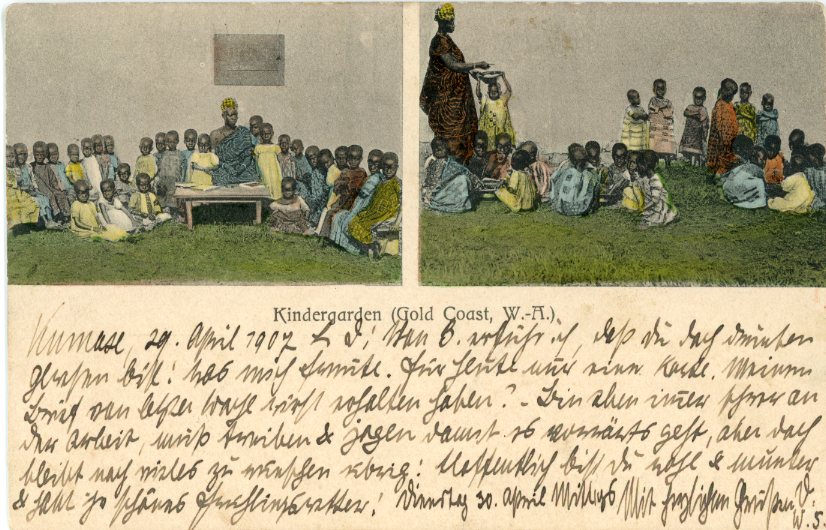 Kindergarden (Gold Coast, W.-A.)
Kumase, 29. April 1907 L. D.! Von E. erfuhr ich, daß du doch drunten
gewesen bist! was mich freute. Für heute nur eine Karte. Meinen
Brief von letzter Woche wirst erhalten haben? - Bin eben immer schwer an
der Arbeit, muß treiben & jagen damit es vorwärts geht, aber doch
bleibt noch vieles zu wünschen übrig! Hoffentlich bist Du wohl & munter
& habt ihr schönes Frühlingswetter! Dienstag 30. April Mittags Mit herzlichen Grüßen D.
W. S